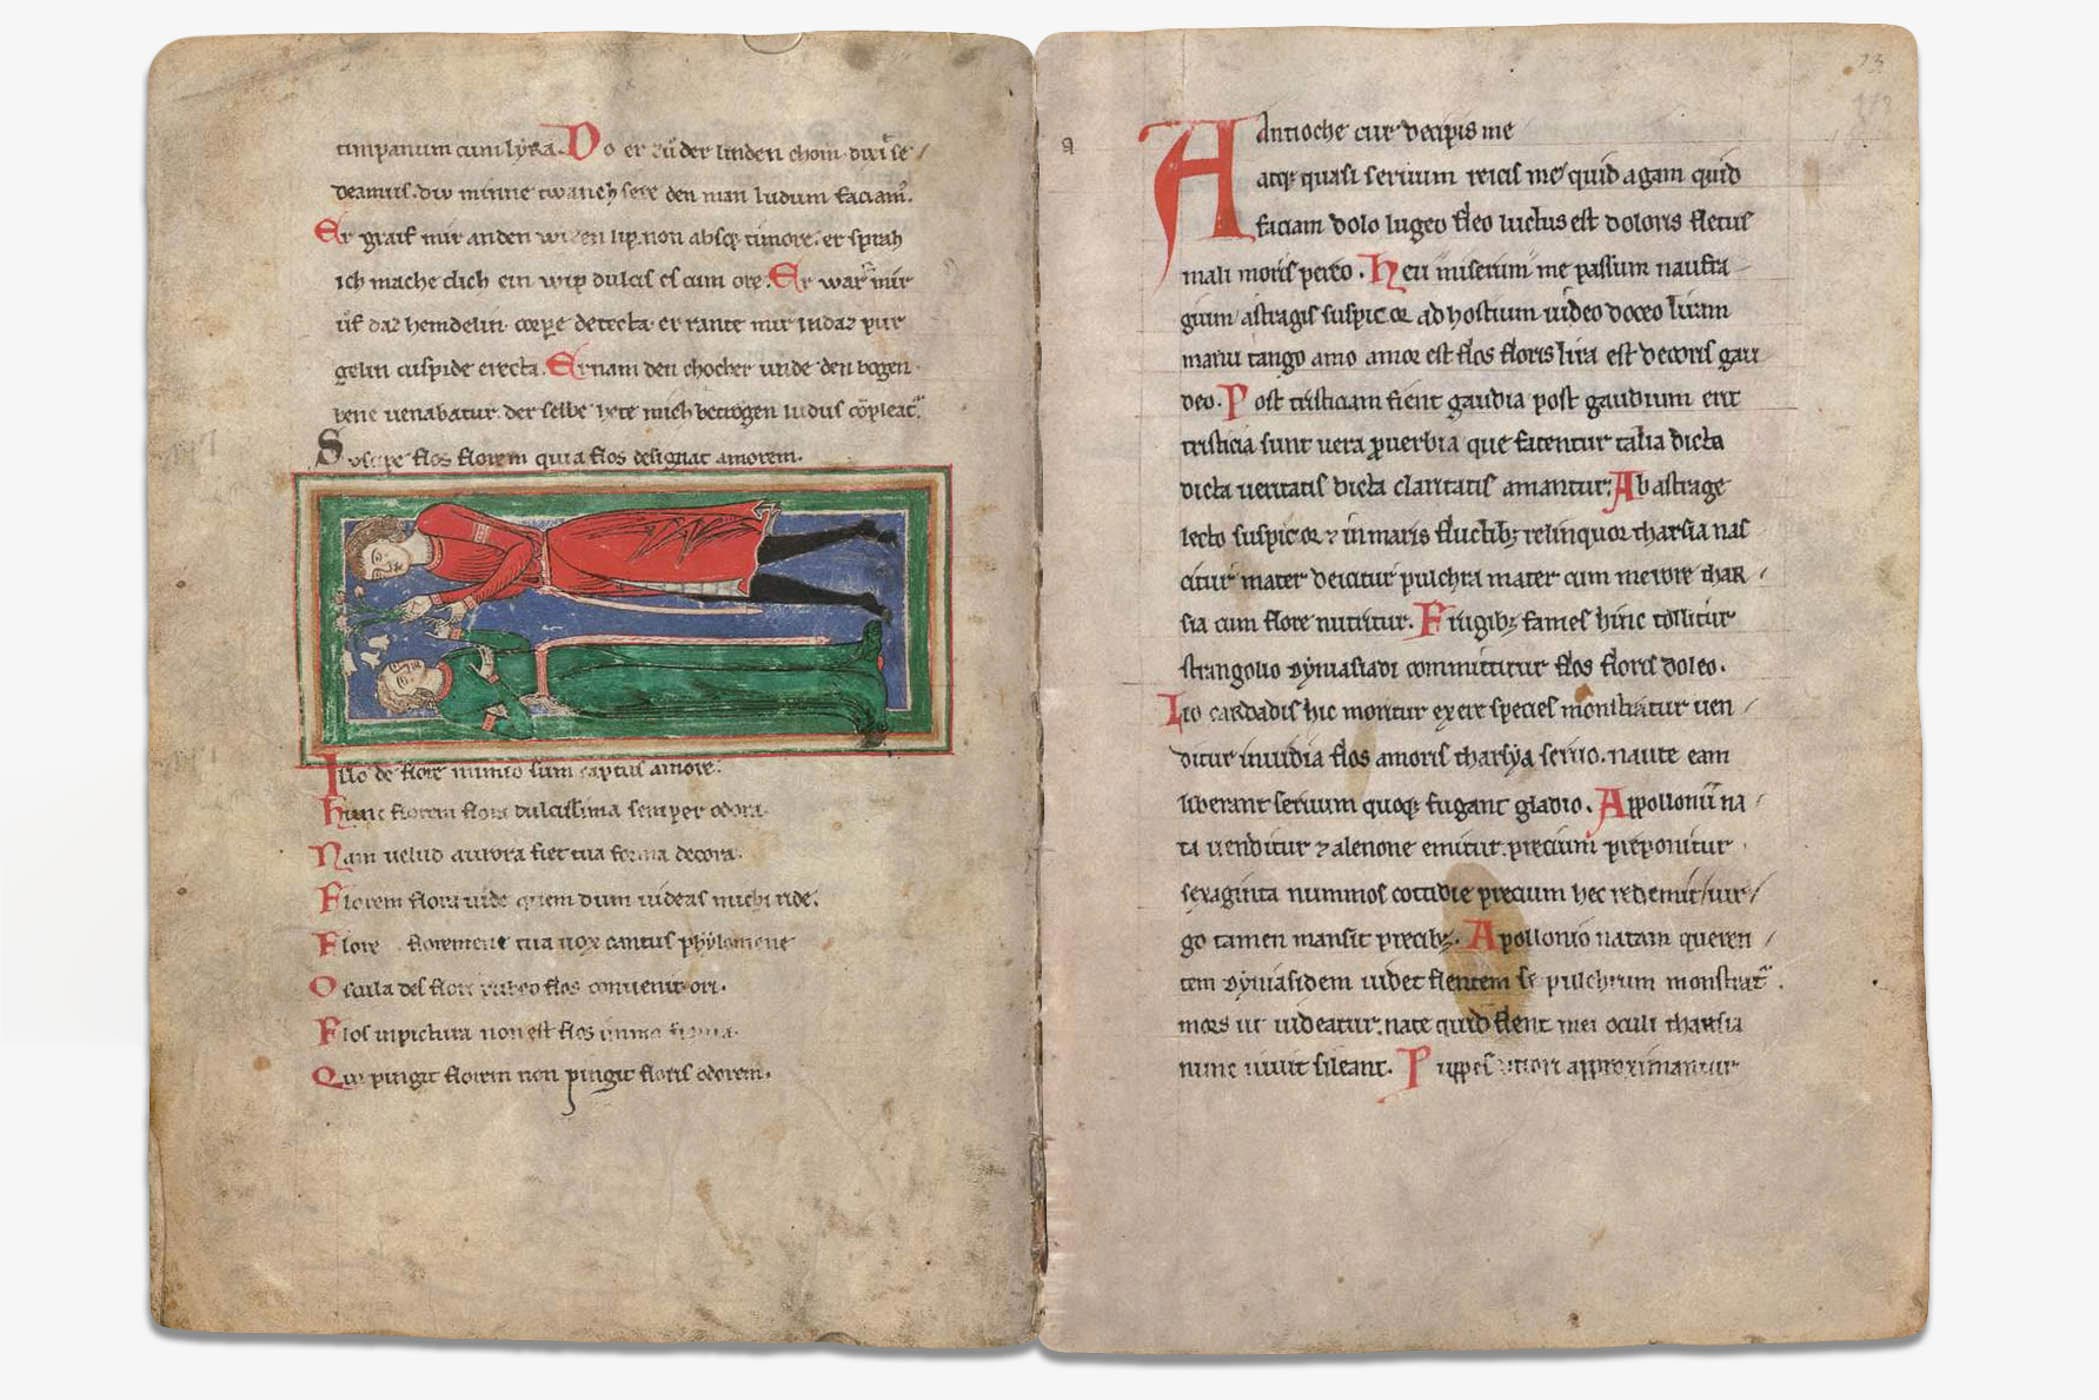 timpanum cum lyra. Do er zů der linden chom· dixit se
deamus. div minne twanch sere den man ludum faciam⁹.
Er graif mir an den wizen lip. non absq; timore. er sprah
ich mache dich ein wip dulcis es cum ore. Er warf mir
ůf daz hemdelin· corpe detecta· er rante mir in daz pur
gelin cuspide erecta. Er nam den chocher unde den bogen·
bene uenabatur. der selbe hete mich betrogen ludus cōpleat᷑.
Suscipe flos florem quia flos designat amorem.
Illo de flore nimio sum captus amore.
Hunc florem flora dulcissima semper odora.
Nam uelud aurora fiet tua forma decora.
Florem flora uide quem dum uideas michi ride.
Flore tua uox cantus phylomene
Oscula des flori rubeo flos conuenit ori.
Flos inpictura non est flos immo figura.
Qui pingit florem non pingit floris odorem.
23
a
Antioche cur decipis me
atq; quasi seruum reicis me quid agam quid
faciam dolo lugeo fleo luctus est doloris fletus
mali moris pereo. Heu miserum me passum naufra
gium astragis suspicor ad hostium uideo doceo liram
manu tango amo amor est flos floris lira est decoris gau
deo. Post tristiciam fient gaudia post gaudium erit
tristicia sunt uera puerbia que fatentur talia dicta
dicta ueritatis dicta claritatis amantur. Ab astrage
lecto suspicor ⁊ in maris fluctib; relinquor tharsia nas
citur mater deicitur pulchra mater cum merore thar
sia cum flore nutritur. Frugib; fames hinc tollitur
strangolio dyniasiadi committitur flos floris doleo.
Lio cardadis hic moritur exere species monstratur uen
ditur inuidia flos amoris tharsya seruo. naute eam
liberant seruum quoq; fugant gladio. Appollonii na
ta uenditur ⁊ alenone emitur. precium preponitur
sexaginta nummos cottidie precium hec redemit uir
go tamen mansit precib;. Apollonio natam queren
tem dyniasidem uidet flentem se pulchrum monstrat᷑.
mors ut uideatur. nate quid flent mei oculi tharsia
nunc uiuit sileant. Puppes litori approximantur